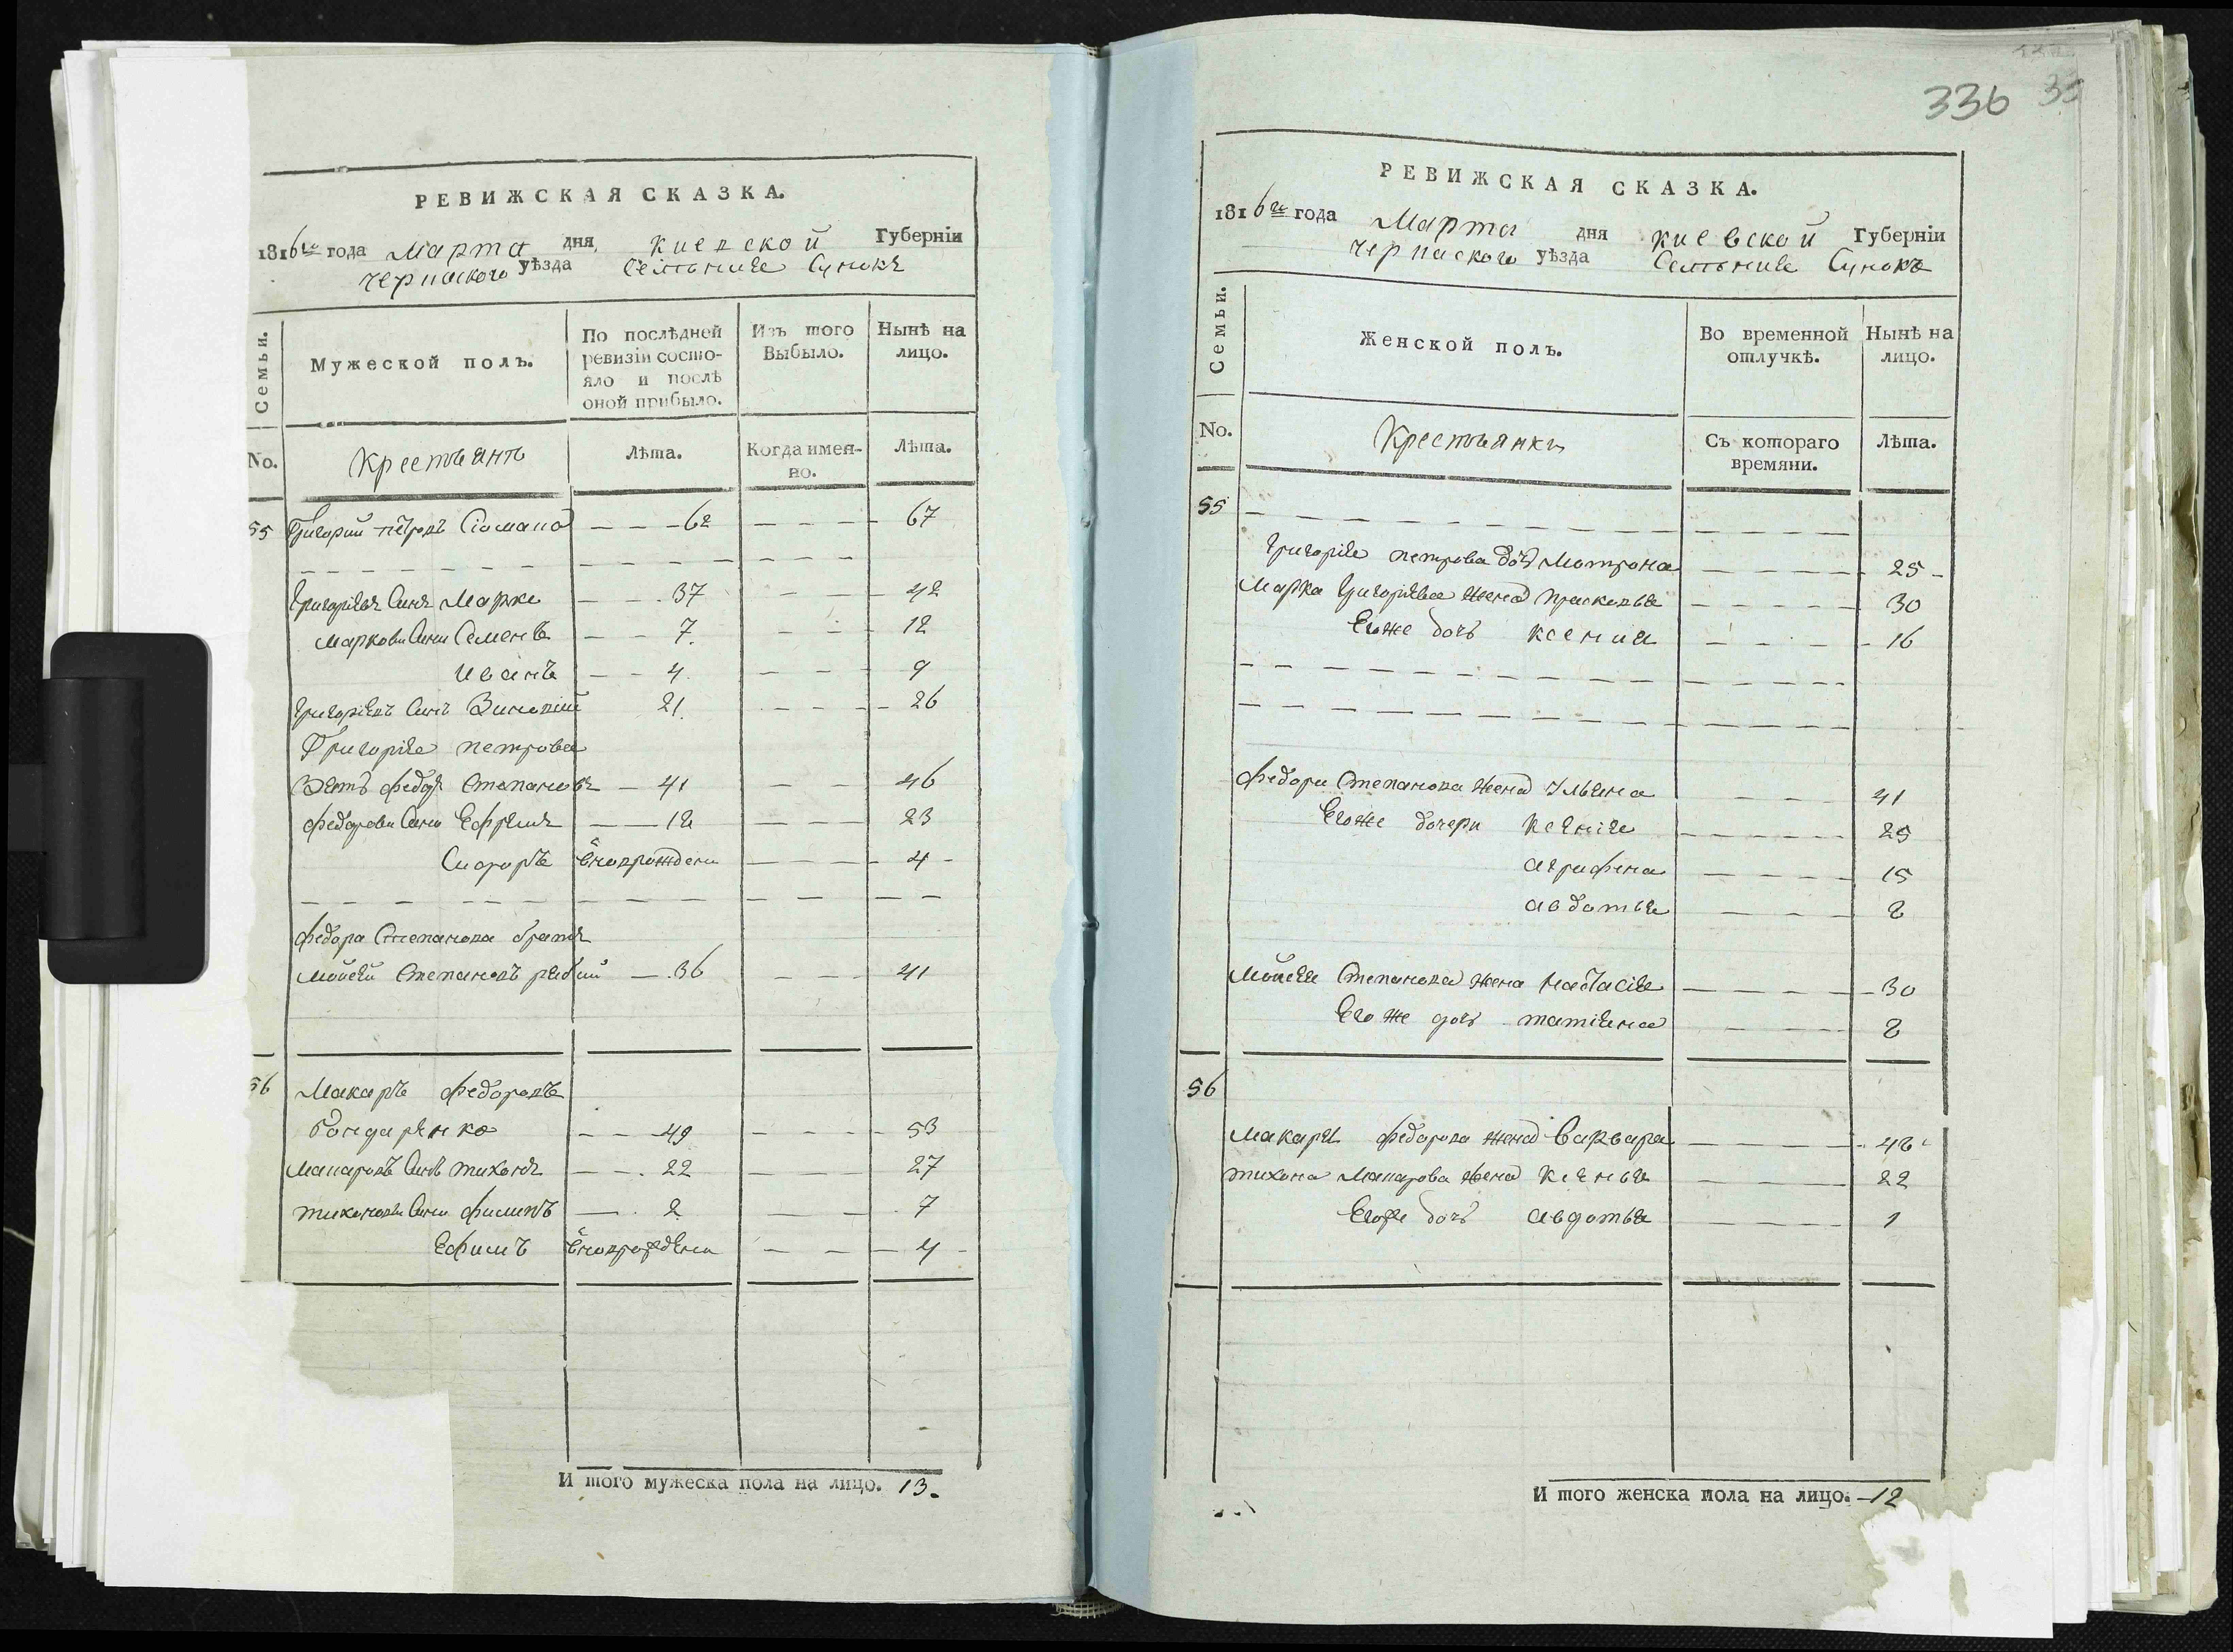 РЕВИЖСКАЯ СКАЗКА.
1816го года Марта дня Киевской Губерніи
Черкаского уѣзда Селѣнии Сунокъ
Семьи.
Мужеской полъ.
По послѣдней ревизіи состо-
яло и послѣ
оной прибыло.
Изъ того
Выбыло.
Нынѣ на
лицо.
No.
Крестьянъ
Лѣта.
Когда имен-
но.
Лѣта.
55 Григорий петровъ - - - 62 - - - - 67
Григорiевъ Синъ Марко - - 37 - - - 42
Маркови Сини Семенъ - - 7. - - - 12
Иванъ - - 4. - - - 9
Григорiевъ Синъ Зиновий 21. - - - - 26
Григорiя петрова
Зять федоръ Степановъ - 41 - - 46
федорови Сини Ефремъ - - 18 - - - 23
Сидоръ вновьрождени - - - 4 -
федора Степанова братъ
Мойсей Степановъ рябий - . 36 - - - 41
56 Макаръ федоровъ
бондаренко - - 49 - - - - 53
Макаровъ Синъ тихонъ - - . 22 - - 27
тихонови Сини филипъ - . 2 - - . 7
Ефимъ вновьрождени - - - 4 -
И того мужеска пола на лицо. 13.
336
РЕВИЖСКАЯ СКАЗКА.
1816го года Марта дня Киевской Губерніи
Черкаского уѣзда Селѣнии Сунокъ
Семьи.
Женской полъ.
Во временной
отлучкѣ.
Нынѣ на
лицо.
No.
Крестьянки
Съ котораго
времяни.
Лѣта.
55
Григорiя петрова дочь Мотрона - - - - 25 -
Марка Григориева жена прасковья - - - - 30
Егоже дочь ксения - - - - 16
федора Степанова жена Ульяна - - - 41
Егоже дочери ксенiя - - - - 25
агрифена - - - - 15
авдотья - - - 8
Мойсея Степанова жена настасiя - - - - 30
Его же дочь татiяна - - - 8
56
Макара федорова жена Варвара - - - 48
тихона Макарова жена ксенья - - - 22
Егоже дочь авдотья - - - 1
И того женска пола на лицо. - 12